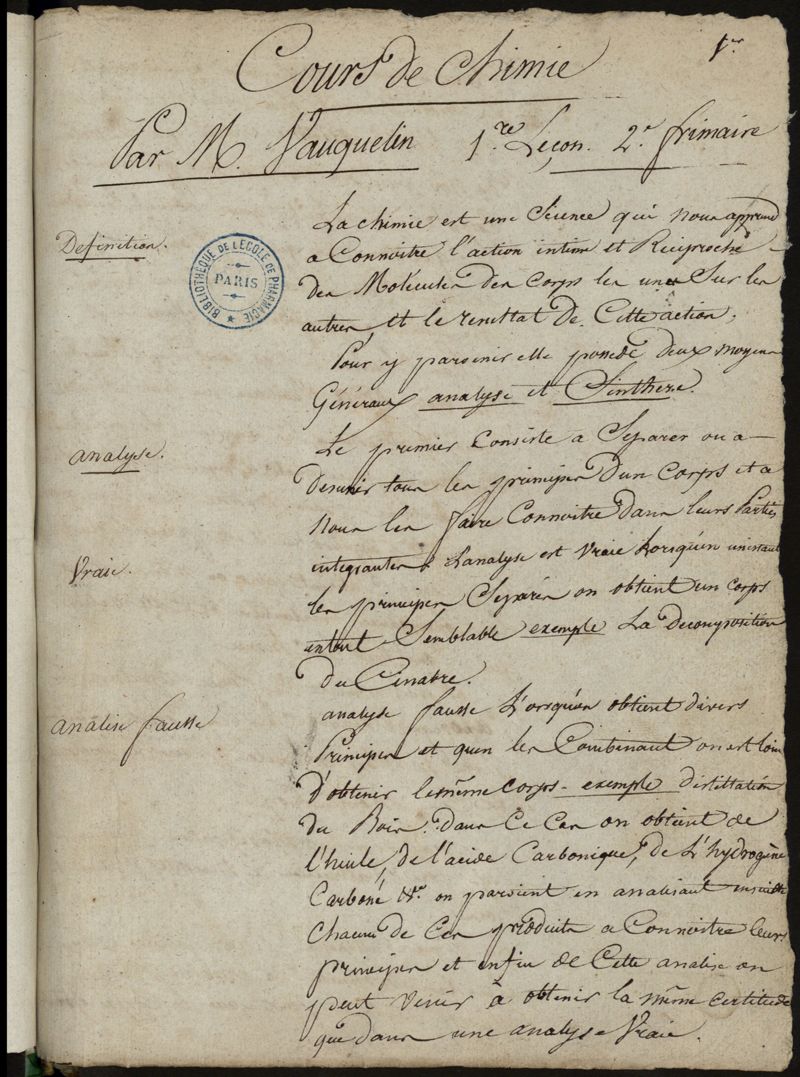 1er
Cours de chimie
Par M. Vauquelin 1.re Leçon. 2.e frimaire
Definition.
BIBLIOTHÈQUE DE L'ECOLE DE PHARMACIE
PARIS
La chimie est une Science qui nous apprend
a Connoitre l'action intime et Réciproche
des Molécules des corps les unes Sur les
autres, et le resultat de Cette action,
Pour y parvenir elle possede deux moyens
Généraux analyse et Sinthese.
analyse.
Le premier Consiste a Separer ou a
Desunir tous les principes D'un Corps et a
nous les faire Connoitre dans leurs Parties
Vraie.
integrantes. L'analyse est Vraie Lorsqu'en unissant
les principes Separés on obtient un corps
en tout Semblable exemple La decomposition
du Cinabre.
analise fausse
analyse fausse Lorsqu'on obtient divers
Principes et qu'en les Combinant on est loin
D'obtenir le même corps - exemple distillation
du Bois. dans Ce Cas on obtient de
l'huile, de l'acide Carbonique, de L'hydrogène
Carboné &a on parvient en analisant ensuite
Chacun de Ces produits a Connoitre leurs
principes et enfin de Cette analise on
peut venir à obtenir la même certitude
que dans une analyse Vraie.